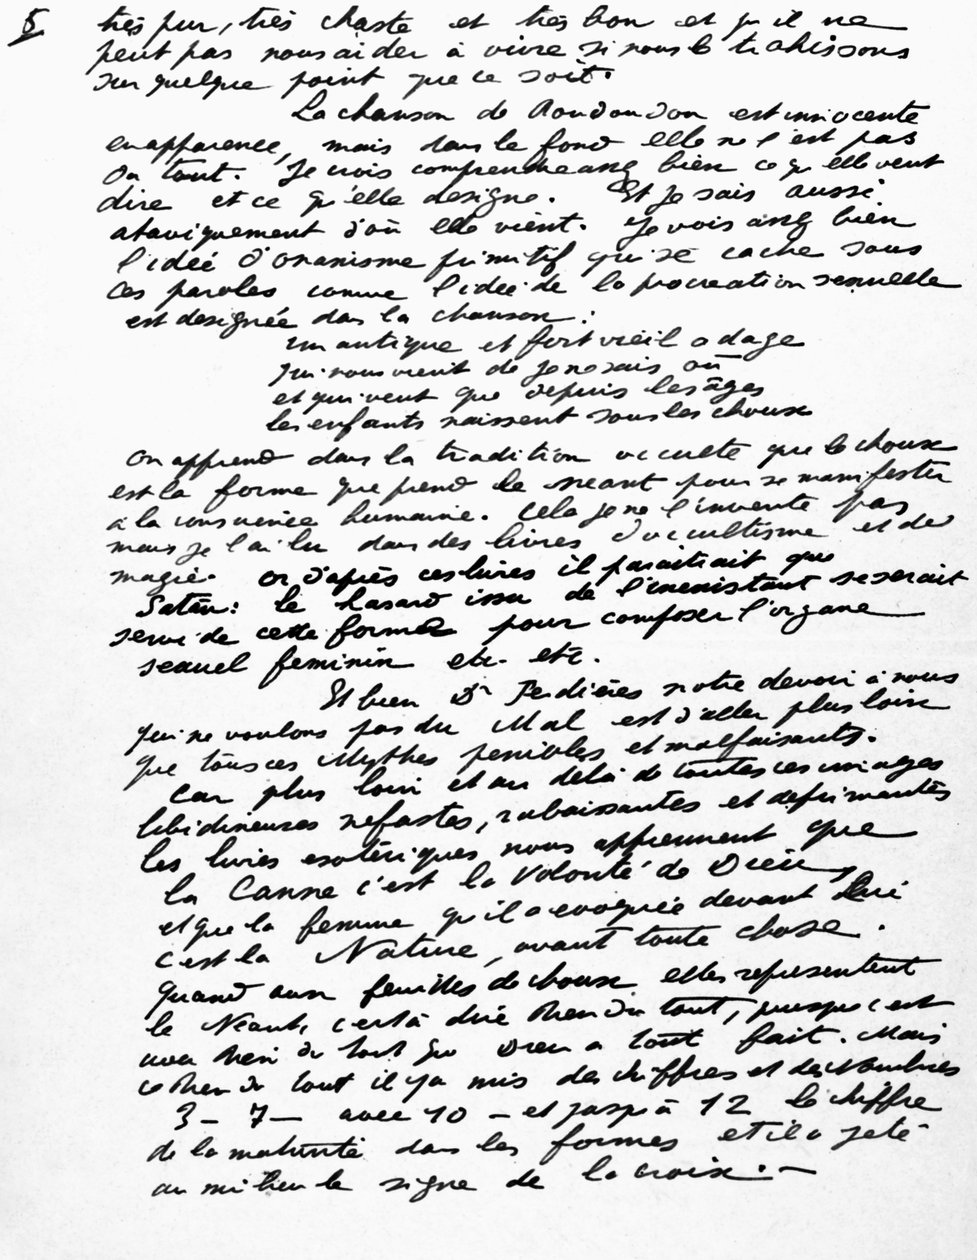 5 très pur, très chaste et très bon et qu'il ne
peut pas nous aider à vivre si nous le trahissons
sur quelque point que ce soit.
La chanson de Roudoudou est innocente
en apparence, mais dans le fond elle ne l'est pas
du tout. Je crois comprendre assez bien ce qu'elle veut
dire et ce qu'elle designe. Et je sais aussi
ataviquement d'où elle vient. Je vois assez bien
l'idée d'onanisme primitif qui se cache sous
ces paroles comme l'idée de la procreation sexuelle
est designée dans la chanson :
un antique et fort vieil adage
qui nous vient de je ne sais où
et qui veut que depuis les âges
les enfants naissent sous les choux
On apprend dans la tradition occulte que le choux
est la forme que prend le néant pour se manifester
à la conscience humaine. Cela je ne l'invente pas
mais je l'ai lu dans des livres d'occultisme et de
magie. Or d'après ces livres il paraitrait que
Satan : le hasard issu de l'inexistant se serait
servi de cette forme pour composer l'organe
sexuel feminin etc. etc.
Et bien Dr Ferdières notre devoir à nous
qui ne voulons pas du Mal est d'aller plus loin
que tous ces Mythes penibles et malfaisants.
Car plus loin et au delà de toutes ces images
libidineuses nefastes, rabaissantes et deprimantes
les livres esotériques nous apprennent que
la Canne c'est la Volonté de Dieu,
et que la femme qu'il a evoquée devant Lui
c'est la Nature, avant toute chose.
Quand aux feuilles de choux elles representent
le Néant, c'est à dire Rien du tout, puisque c'est
avec Rien du tout que Dieu a tout fait. Mais
ce Rien du tout il y a mis des chiffres et des Nombres
3 – 7 – avec 10 – et jusqu'à 12 le chiffre
de la maturité dans les formes et il a jeté
au milieu le signe de la croix. –